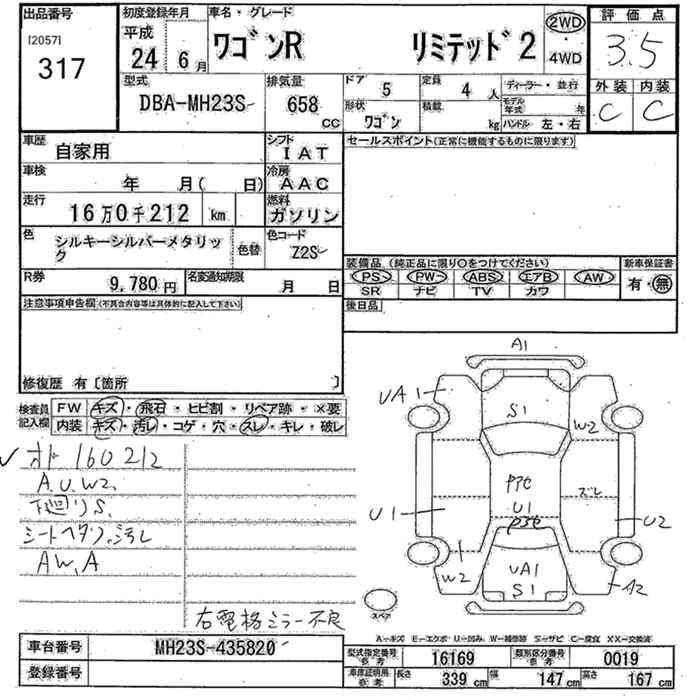 出品番号 初度登録年月 車名・グレード 評価点
[2057] 317
平成 24 6月
ワゴンR リミテッド2
2WD・4WD
3.5
外装 内装
C C
型式 排気量 ドア 定員 ディーラー・並行
DBA-MH23S 658 CC 5 4人
形状 積載 モデル年式 年
ワゴン kg ハンドル 左・右
車歴 シフト セールスポイント(正常に機能するものに限ります)
自家用 IAT
車検 冷房
年 月( 日) AAC
走行 燃料
16万0千212 km ガソリン
色 色替 色コード
シルキーシルバーメタリック Z2S
装備品(純正品に限り○をつけてください) 新車保証書
PS・PW・ABS・エアB・AW 有・無
SR・ナビ・TV・カワ
R券 名変通知期限 後日品
9,780円 月 日
注意事項申告欄(不具合内容等は具体的に記入して下さい)
修復歴 有〔箇所 〕
検査員記入欄
FW キズ・飛石・ヒビ割・リペア跡・×要
内装 キズ・汚レ・コゲ・穴・スレ・キレ・破レ
オド 160212
A.U.W2.
下廻りS.
シートヘタリ,汚レ
AW,A
右電格ミラー不良
A1
UA1
S1
W2
PTC
ズレ
U1
U1
U2
W2
UA1
S1
A2
スペア
A…キズ E…エクボ U…凹み W…補修跡 S…サビ C…腐食 XX…交換済
車台番号 MH23S-435820
登録番号
型式指定番号参考 16169 類別区分番号参考 0019
車庫証明用参考 長さ 339cm 幅 147cm 高さ 167cm